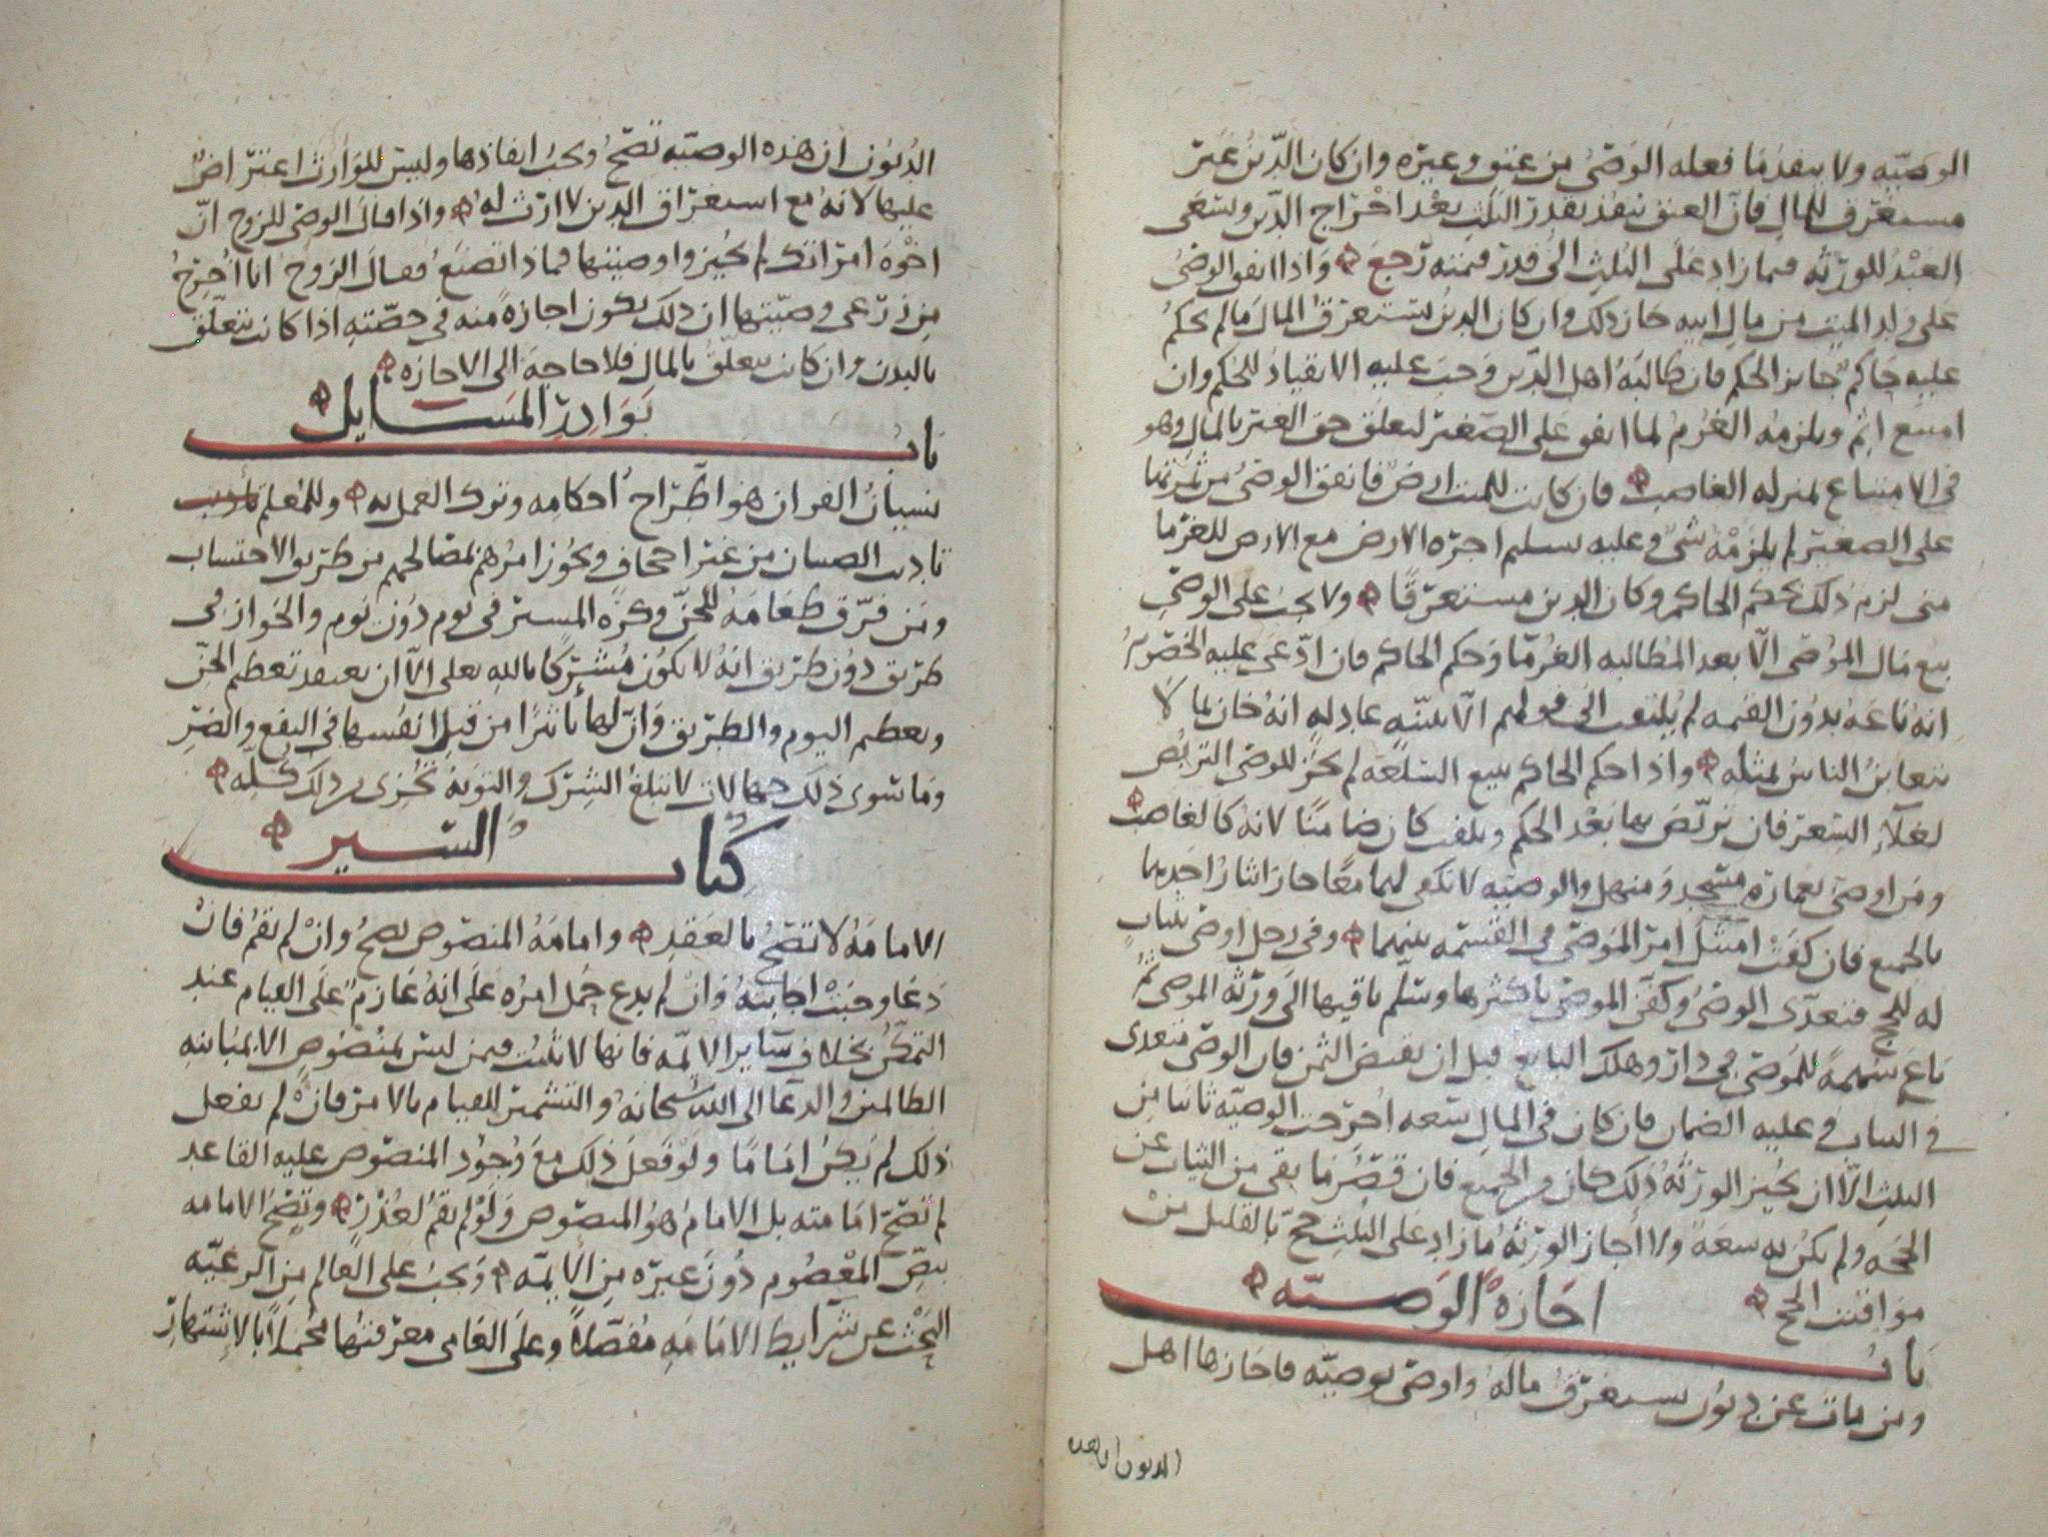 الوصيّه ولا ينفذ ما فعله الوَصيُ من عتق وغيره وان كان الدّينُ غير
مستغرق للمال فانّ العتق ينفذ بقدر الثلثِ بعْد اخْراج الدّين ويسْعَى
العَبْدُ للورَثَه فيما زاد عَلى الثُلثِ الىُ قدر قيمته رَجعَ وَاذا انفق الوصىُ
عَلى ولدِ الميّت من مالِ ابيه جاز ذلك وان كان الدين يستغرقُ المالَ ما لم يحكمُ
عليه حَاكمٌ جايز الحكم فان طالبَهُ اهل الدّين وَجبَ عليه الانقيادُ للحُكم وان
امتنع اثم ويلزمُه الغُرْمُ لما انفق عَلى الصّغير لتعلّق حق الغير بالمالِ وهو
فى الامتناع بمنزله الغاصبِ فان كانت للميّت ارضٌ فانفق الوصىُ من ثمرَتها
على الصغيرِ لم يلزمْه شىٌ وعليه تسليم اجره الارض مع الارض للغرَما
متى لزم ذلك بحكم الحاكم وكان الدين مستغرقًا ولا يجبُ على الوصِّى
بيع مَال المُوصى الّا بعد المُطالبه الغُرمَا وَحكم الحاكم فان ادّعَى عليه الخصُومُ
انهُ بَاعَهُ بدوُن القيمه لم يُلتفت الىُ قولهم الّا ببيّنهٍ عادِلهٍ انهُ خان بما لَا
يتغابنُ الناسُ بمثله واذا حكم الحاكم ببيع السّلعَه لم يجُز للوصى التربّصُ
لغلآءِ السّعر فان تربّصَ بها بَعْد الحكم وتلفت كان ضَامنًا لانهُ كالغاصبْ
ومَن اوصَى بعمارَه مسْجدٍ وَمنهلٍ والوصيّه لا تكفى لهما معًا جاز ايثارُ احَدِهما
بالجميع فان كفَتْ امتثَل امرَ المُوصىّ فى القِسْمَه بينهما وفى رجل اوصَى بثيابٍ
له للحج فتعدّى الوصىُ وكفّنَ الموصىَ باكثرها وسَلّم باقيها الى ورَثَه الموصى ثمُ
بَاعَ سَهمهً للمُوصىِ فى دارٍ وهلك البايع قبل ان يقبضَ الثمن فان الوصىَ متعدى
فى الثياب وعليه الضمان فان كان فى المالِ سَعه اخرجت الوصيّه ثانيًا من
الثلثِ الّا ان يُجيز الورثهُ ذلك كان من الجميع فان قصّرَ مَا بقى من الثياب عَن
الحجّه ولم يكن له سعَهٌ ولا اجاز الورثهُ مَا زاد عَلى الثلثِ حجَّ بالقليل مِنْ
مَواقيت الحج
بابُ اجَازةُ الوَصيّه
ومن ماتَ عن ديُونٍ تستغرقُ مالهُ واوصَى بوصيّه فاجَازها اهل
الديون ان هذه
الدُيوُن ان هذه الوصيّه تصَحُّ ويجبُ انفاذها وليسَ للوَارث اعتراضٌ
عليها لانهُ مع استغراق الدين لا ارْث لهُ وَاذا قالَ الوصى للزوج انّ
اخْوَة امرَاتك لم يُجيزوا وصيّتها فماذا تصْنَعُ فقالَ الزوجُ انا اُخرِجُ
من زرعى وصيّتها ان ذلك يكون اجازهً منه فى حصّتهِ اذا كانت تتعلّق
بالبدن وان كانت تتعلّقُ بالمال فلا حاجهَ الى الاجازه
بابُ نوَادِر المسَايل
نسيَانُ القران هوَ اطّرَاحُ احكامِه وتَرك العمل به وللمُعلّم
تاديب الصبيان من غير اجحاف ويجُوز امرُهم بمصَالحهم من طريق الاحتساب
ومَن فرّق طعَامَهُ للجنّ وكرَه المسيرَ فى يومٍ دوُن يوم والجوازَ فى
طريق دوُن طريق انهُ لا يكوُن مُشركًا بالله تعلى الّا ان يعتقد تعظيم الجنّ
وتعظيم اليوم والطريق وَانّ لها تاثيرًا من قبل انفُسِها فى النفع والضرِّ
ومَا سوى ذلك جهالات لا تبلغُ الشرك والتوَبهُ تُجزى من ذلك كلّهِ
كتابُ السّيرِ
الامامَهُ لا تصَحُّ بالعَقدِ وامامَهُ المنصُوصِ تصحُ وانْ لم يَقمُ فانْ
دَعَا وجَبتْ اجَابتهُ وَانْ لم يدعِ حُمل امرُه عَلى انهُ عَازمٌ عَلى القيام عند
التمكنُ بخلاف سَايرِ الايمّه فانها لا تثبُت فيمن ليسَ بمنصُوصٍ الا بمُبَاينهِ
الظالمين والدعَا الى اللهِ سُبحانهُ والتشميرِ للقيام بالامر فانْ لم يفعل
ذلك لم يَكُنْ امَامًا ولوْ فعَلَ ذلك معَ وُجُودِ المنصُوصِ عليه القاعد
لم تصَحّ امَامته بل الامامُ هوُ المنصُوص وَلوْ لم يقمُ لعُذرٍ وتصَحُ الامامه
بنصِّ المعْصُومِ دُونَ غيرِه من الايمّه وَيجبُ على العَالمِ من الرعيّه
البَحْث عن شرَايط الامَامَهِ مُفصّلاً وعلَى العَامى معرفتهُا مُجمَلاً بالاشتهَارِ